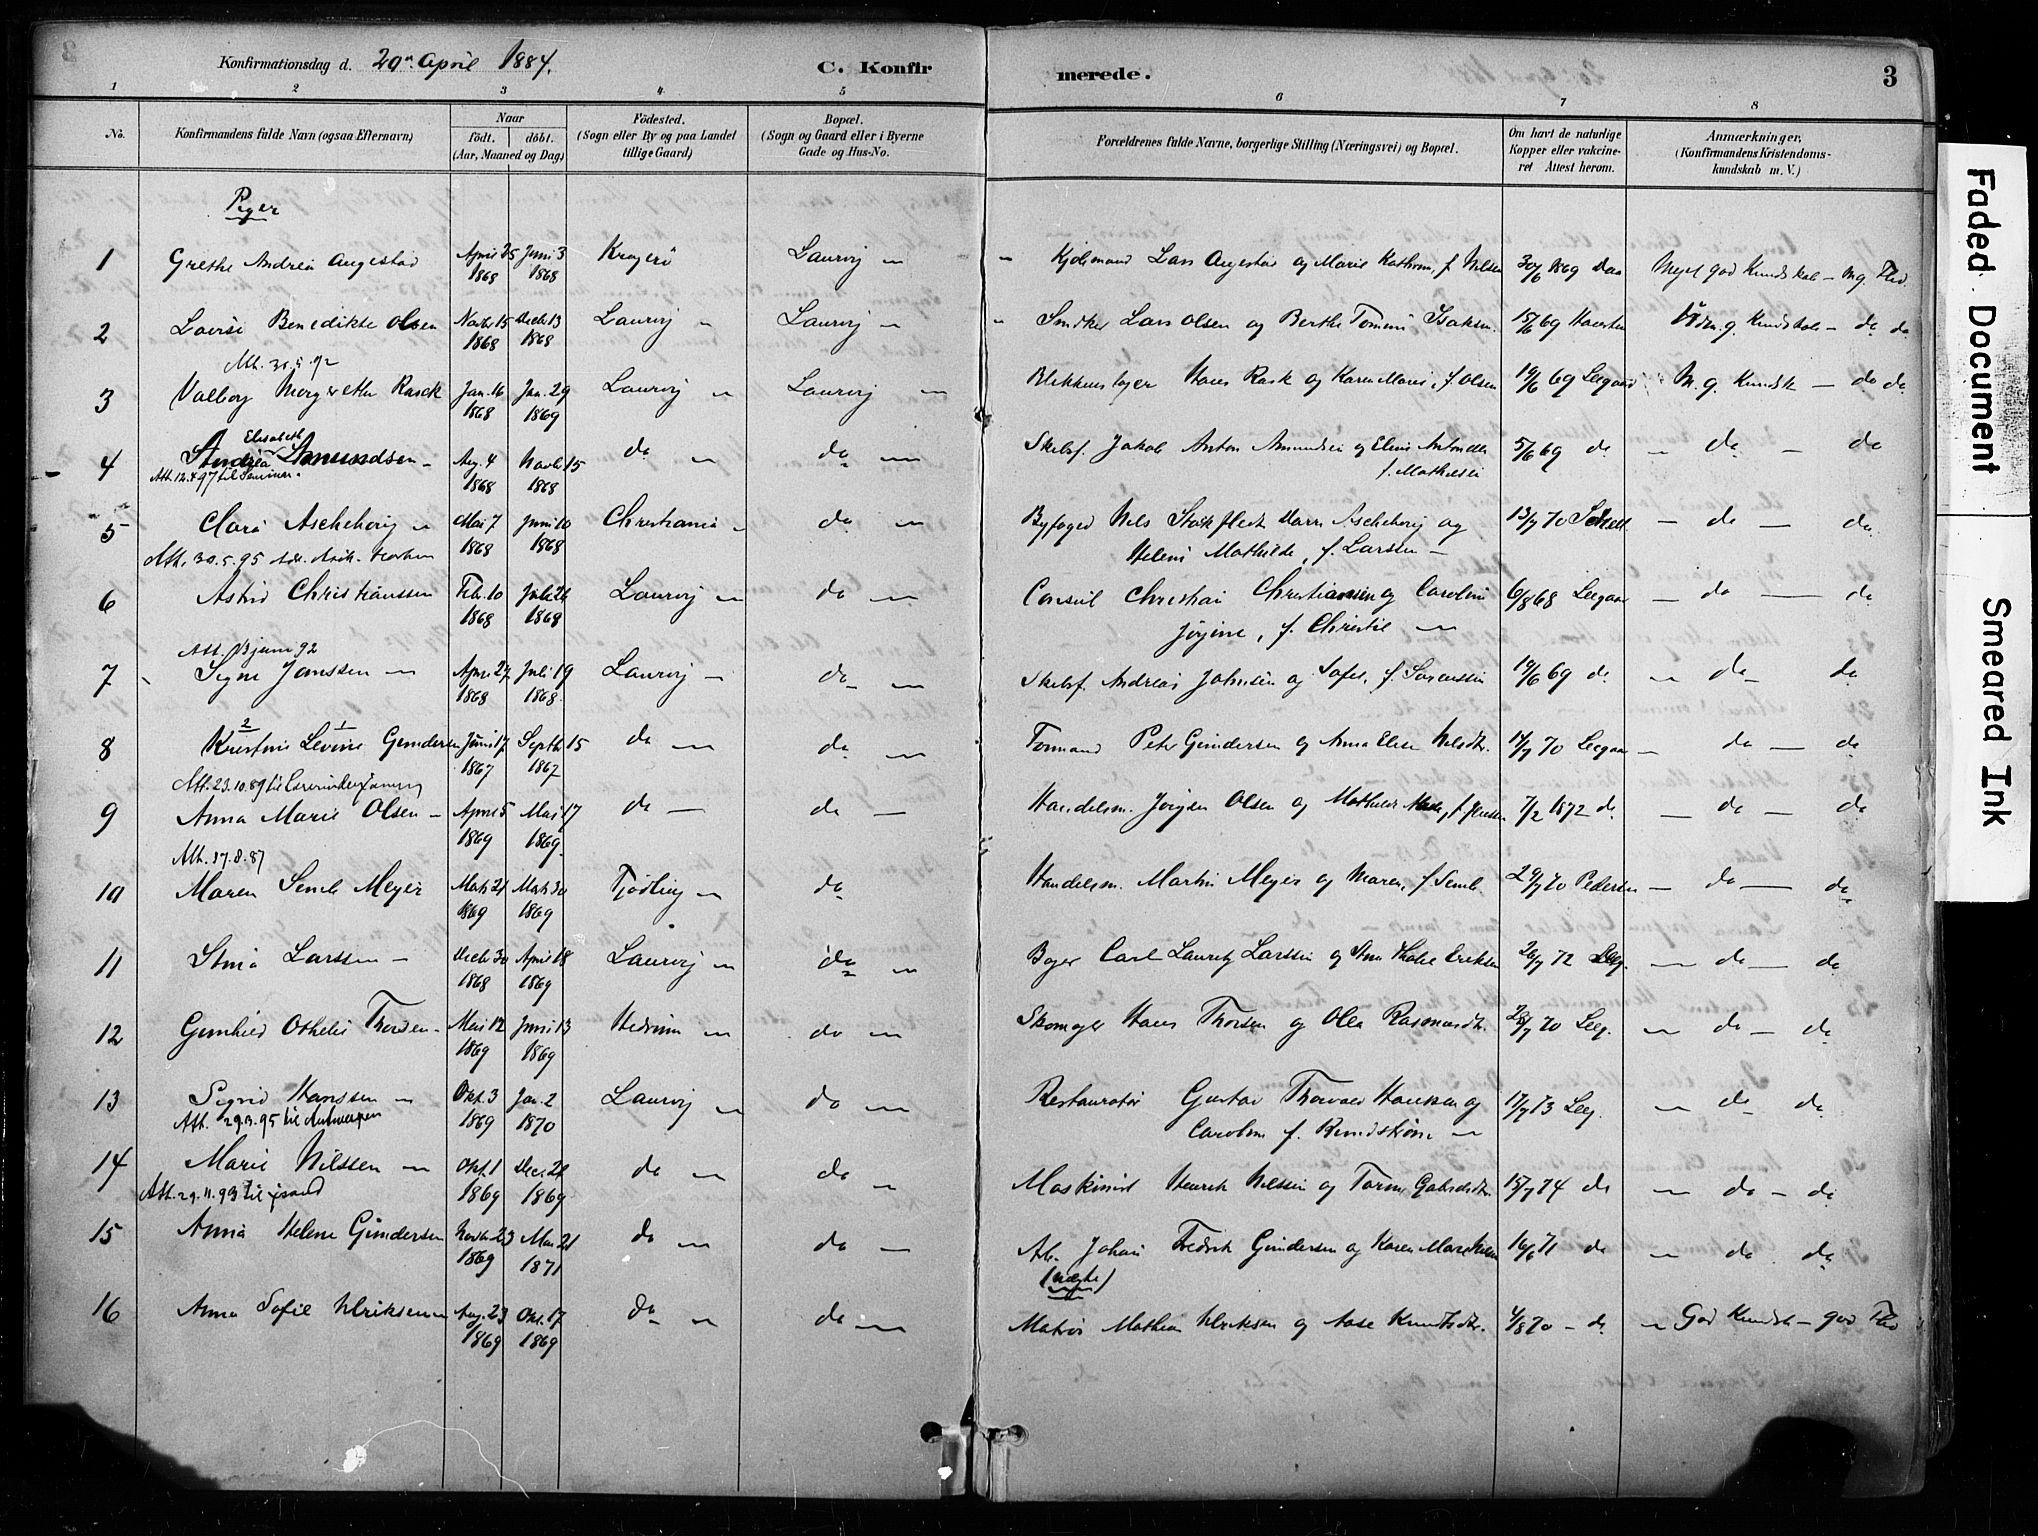 Konfirmationsdag d. 20de April 1884. C. Konfirmerede. 3
1 2 3 4 5 6 7 8
No. Konfirmandens fulde Navn (ogsaa Efternavn) Naar født. døbt. (Aar, Maaned og Dag) Fødested. (Sogn eller By og paa Landet tillige Gaard) Bopæl. (Sogn og Gaard eller i Byerne Gade og Hus-No. Forældrenes fulde Navne, borgerlige Stilling (Næringsvei) og Bopæl. Om havt de naturlige Kopper eller vakcineret Attest herom. Anmærkninger, (Konfirmandens Kristendomskundskab m. V.)
Piger
1 Grethe Andrea Augestad April 25 1868 Juni 3 1868 Kragerø Laurvig Lars Augestad og Marie f. Nilsen 30/6 1869 Meget god Kundskab - mg. Flid.
2 Lovise Benedikte Olsen Novbr 15 1868 Decbr 13 1868 Laurvig Laurvig Snedker Lars Olsen og Berthe Isaksen. 15/6 69 g. Kundskab - do do
Att. 30.5.92
3 Valborg Margrethe Rasck Jan. 16 1868 Jan. 29 1869 Laurvig Laurvig Hans Rask og Karen Marie, f. Olsen 19/6 69 Leegaard M. g. Kundsk - do do
4 Andrea Elisabeth Amundsen - Aug. 4 1868 Novbr 15 1868 do do Skibsf. Jakob Anton Amundsen og f. Mathisen 5/6 69 do - do - do
Att. 12.4.97 til
5 Clara Aschehoug Mai 7 1868 Juni 10 1868 Christiania do Byfoged Nils Stokfleth Aschehoug og Helene Mathilde, f. Larsen - 13/7 70 - do - do
Att. 30.5.95
6 Astrid Christianssen Feb. 10 1868 1868 Laurvig do Consul Christian Christiansen og Caroline Jørgine, f. Christie 6/8 68 Leegaar - do - do
Att. juni 92
7 Signe Janssen April 27 1868 Juli 19 1868 Laurvig do Skibsf. Andreas Johnsen og Sofie, f. Sørenssen 19/6 69 do do do
8 Kristine Levine Gundersen Juni 17 1867 Septbr 15 1867 do do Tommand Peter Gundersen og Anna Elise Nilsdtr. 14/7 70 Leegaar - do - do
Att. 23.10.89 til
9 Anna Marie Olsen - April 5 1869 Mai 17 1869 do - do - Handelsm. Jørgen Olsen og Mathilde f. Jensen 7/2 1872 do - do - do
Att. 17.8.87
10 Maren Semb Meyer 1869 1869 Tjødling do Handelsm. Martin Meyer og Maren, f. Semb. 29/7 70 Pedersen - do - do
11 Stina Larssen - Decbr 30 1868 April 18 1869 Laurvig do Carl Lauritz Larssen og Eriksen 72 Leeg. - do - do
12 Gunhild Othelie Thorsen - Mai 12 1869 Juni 13 1869 Hedrum do Skomager Hans Thorsen og Olea Rasmusdtr. 70 Leeg. - do - do
13 Sigrid Hanssen Okt. 3 1869 Jan. 2 1870 Laurvig do Restauratør Gustav Thorvald Hanssen og Caroline f. Rundstrøm 17/7 73 Leeg. do do
Att. 29.3.95 til Antwerpen
14 Marie Nilssen Okt. 1 1869 1869 do do Maskinist Henrik Nilssen og 15/7 74 do do - do
Att. 29.11.93 til
15 Anna Helene Gundersen Novbr 23 1869 Mai 21 1871 do do - Arb. Johan Fredrik Gundersen og Karen 16/6 71 do do do
(uægte)
16 Anna Sofie Ulriksen Aug. 23 1869 Okt. 17 1869 do do Matros Mathias Ulriksen og Aase Knudsdtr. 4/8 70 - do God Kundsk - god Flid
Faded Document
Smeared Ink